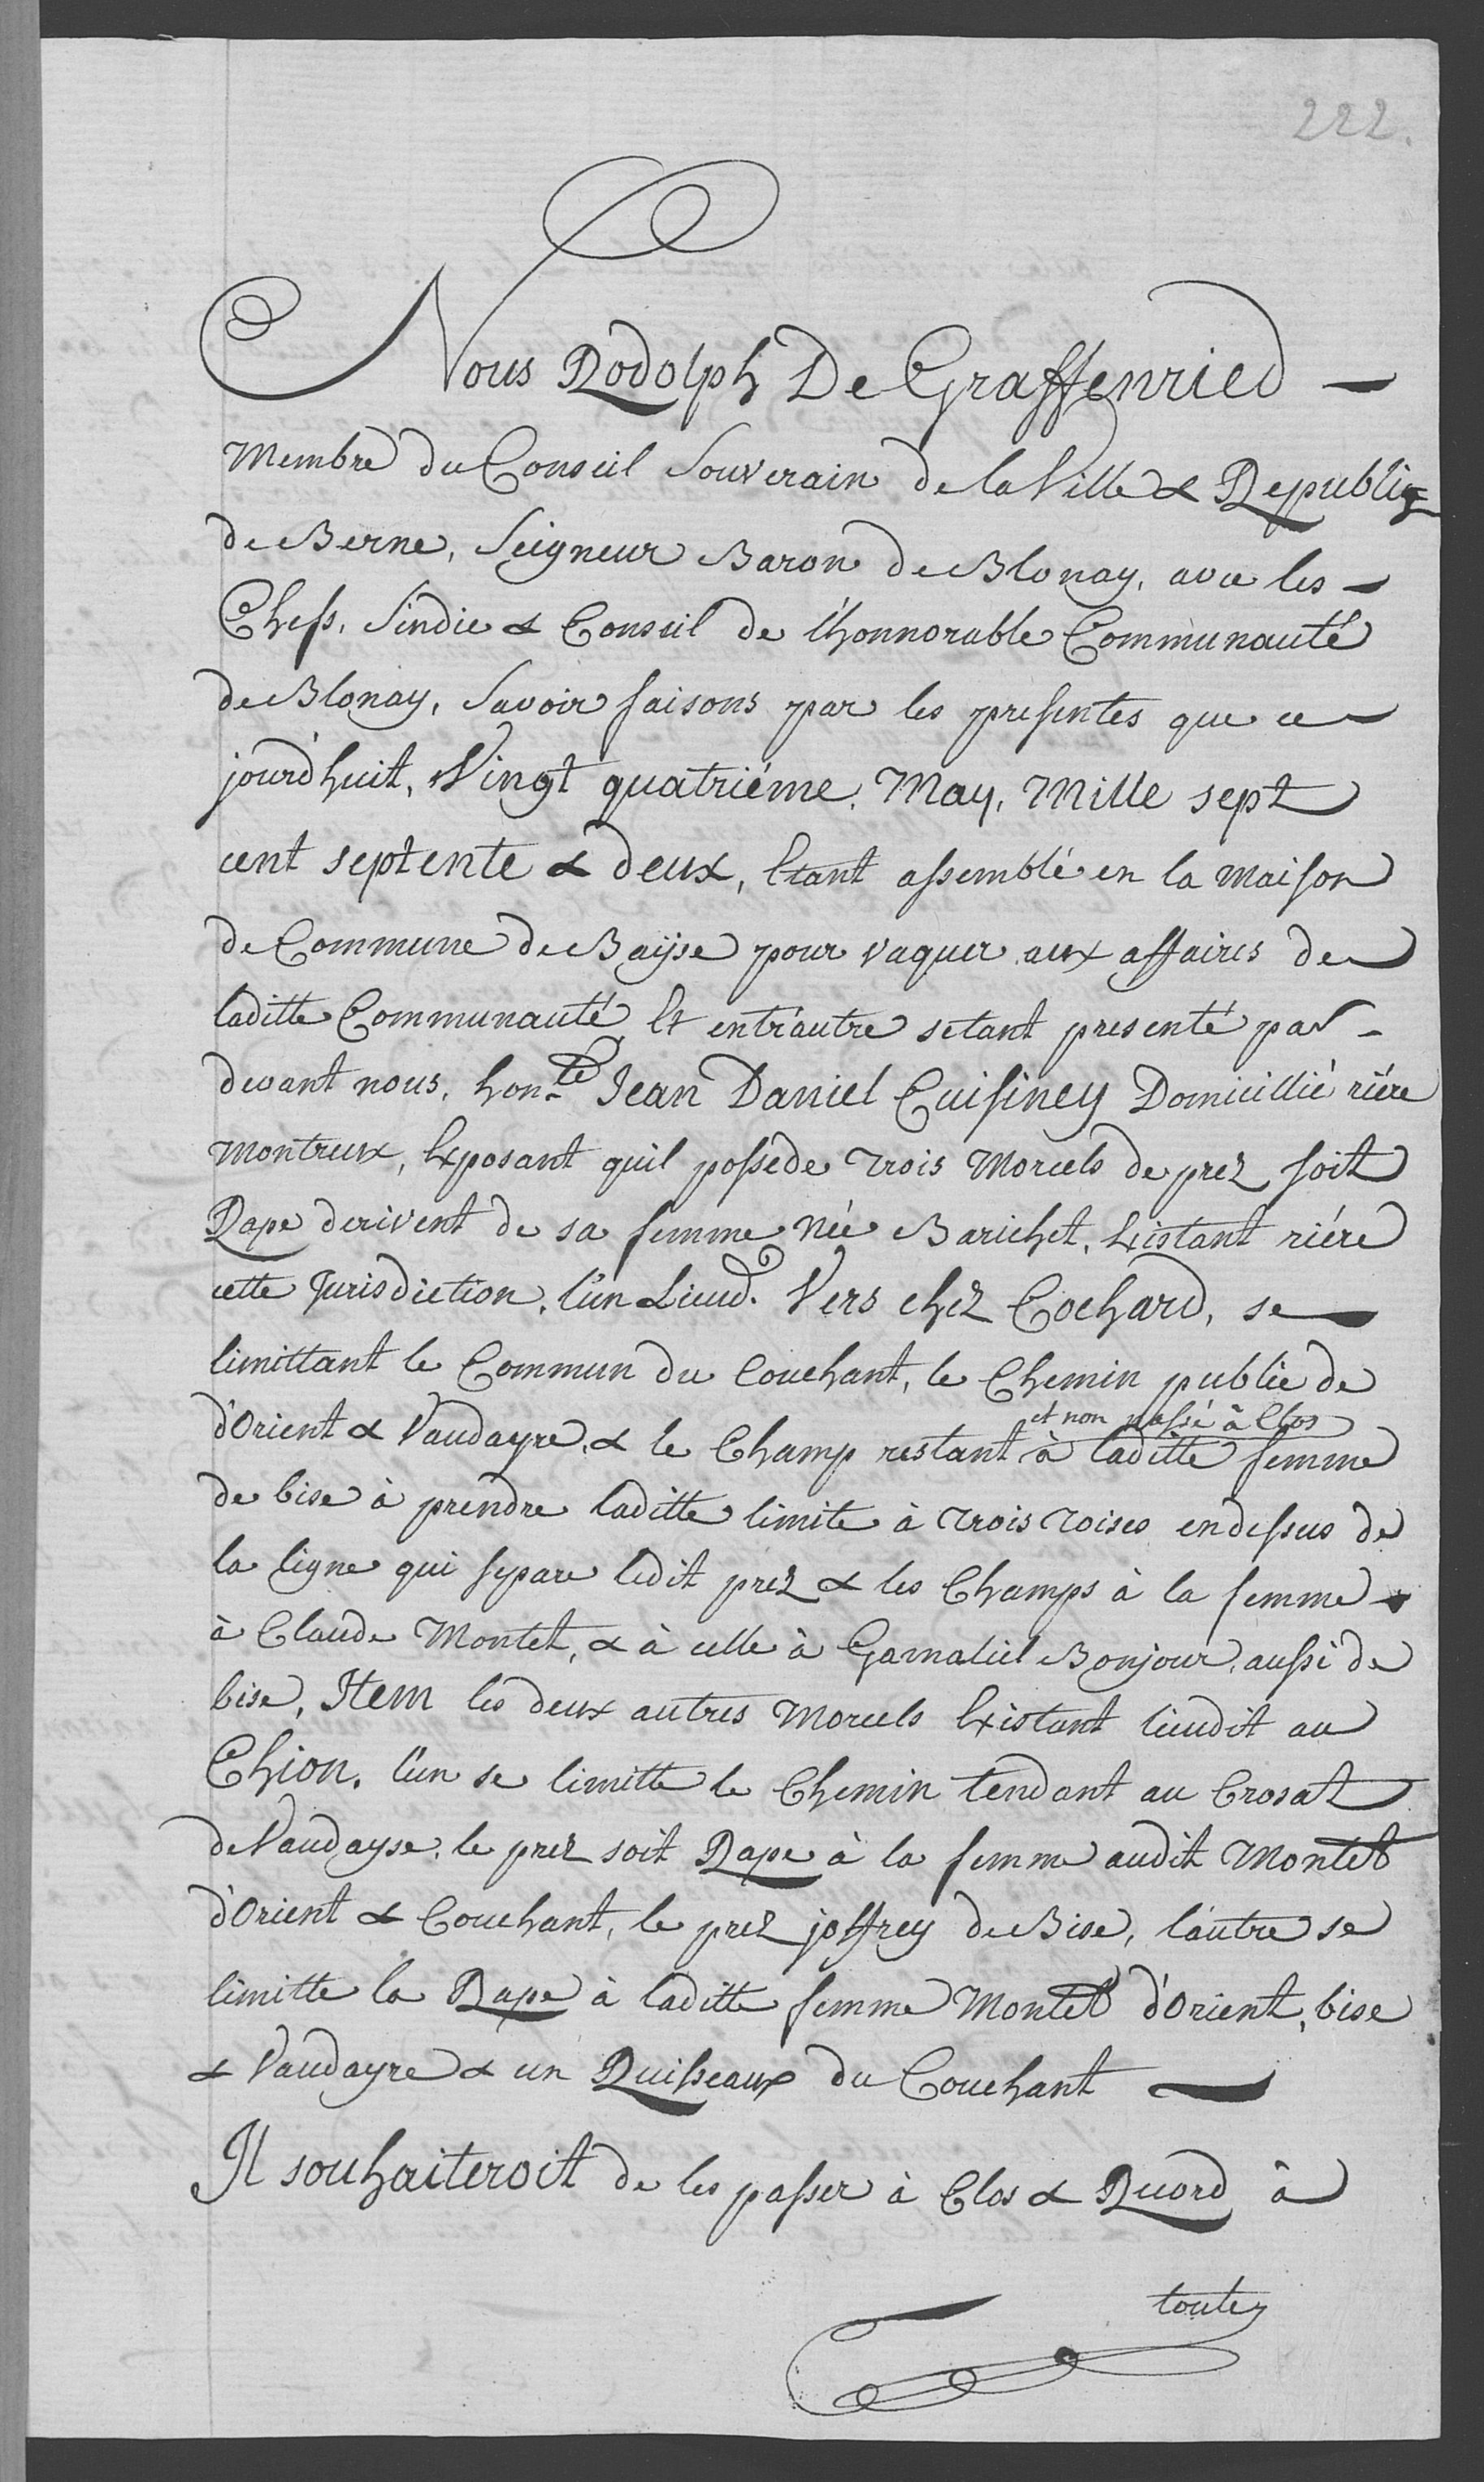 222.
Nous Rodolph De Graffenried
Membre du Conseil Souverain de la Ville & Republiq
de Berne, Seigneur Baron de Blonay, avec les
Chefs, Sindic & Conseil de l'honnorable Communauté
de Blonay, Savoir faisons par les presentes que ce
jourd'huit, Vingt quatriéme, May, Mille sept
cent septente & deux, Etant assemblé en la maison
de Commune de Bayse pour vaquer aux affaires de
laditte Communauté Et entr'autre setant presenté par-
devant nous, hon.te Jean Daniel Cuisiney Domicillié riére
Montreux, Exposant quil possede Trois Morcels de prez soit
Rape derivent de sa femme née Barichet, Existant riére
cette Jurisdiction, l'un Lieud. Vers chez Cochard, se
limittant le Commun du Couchant, le Chemin public de
et non passé à Clos
d'Orient & Vaudayre, & le Champ restant à laditte femme
de bise à prendre laditte limite à Trois Toises endessus de
la ligne qui separe ledit prez & les Champs à la femme
à Claude Montet, & à celle à Gamaliel Bonjour, aussi de
bise, Item les deux autres Morcels Existant lieudit au
Chion, l'un se limitte le Chemin tendant au Crosat
de Vaudayse, le prez soit Rape à la femme audit Montet
d'Orient & Couchant, le prez joffrey de Bise, l'autre se
limitte la Rape à laditte femme Montet d'Orient, bise
& Vaudayre & un Ruisseaux du Couchant
Il souhaiteroit de les passer à Clos & Record à
toute